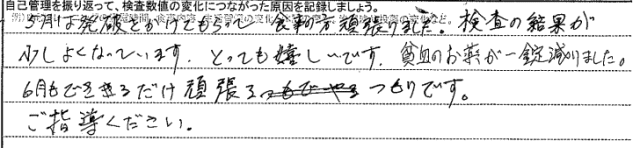 自己管理を振り返って、検査数値の変化につながった原因を記録しましょう。
5月は発破をかけてもらって 食事を頑張りました。検査の結果が
少しよくなっています。とっても嬉しいです。貧血のお薬が一錠減りました。
6月もできるだけ頑張るつもりです。
ご指導ください。